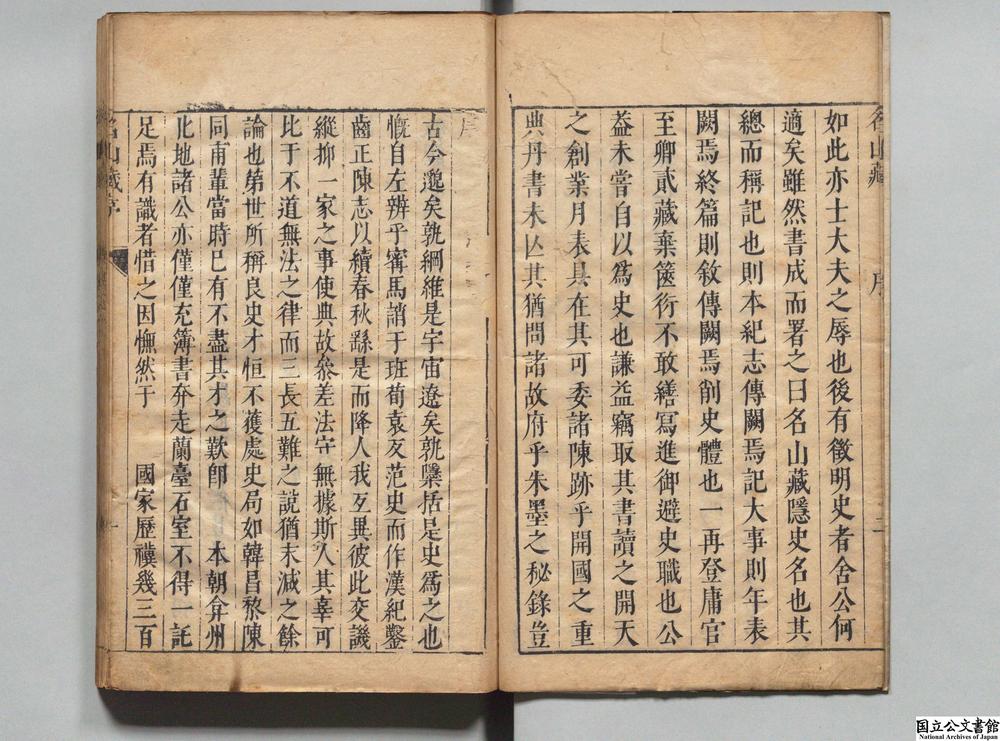 名山藏 序 二
如此亦士大夫之辱也後有徵明史者舍公何
適矣雖然書成而署之曰名山藏隱史名也其
總而稱記也則本紀志傳闕焉記大事則年表
闕焉終篇則敘傳闕焉削史體也一再登庸官
至卿貳藏棄篋衍不敢繕寫進御避史職也公
葢未嘗自以爲史也謙益竊取其書讀之開天
之創業月表具在其可委諸陳跡乎開國之重
典丹書未亾其猶問諸故府乎朱墨之秘錄豈
序
古今邈矣孰綱維是宇宙遼矣孰櫽括是史爲之也
慨自左辨乎寗馬誚于班荀袁及范史而作漢紀鑿
齒正陳志以續春秋繇是而降人我互異彼此交譏
縱抑一家之事使典故叅差法守無據斯人其辜可
比于不道無法之律而三長五難之說猶末减之餘
論也第世所稱良史才恒不獲處史局如韓昌黎陳
同甫輩當時已有不盡其才之歎卽 本朝弇州
此地諸公亦僅僅充簿書奔走蘭臺石室不得一託
足焉有識者惜之因憮然于 國家歷禩幾三百
名山藏序 一
国立公文書館
National Archives of Japan